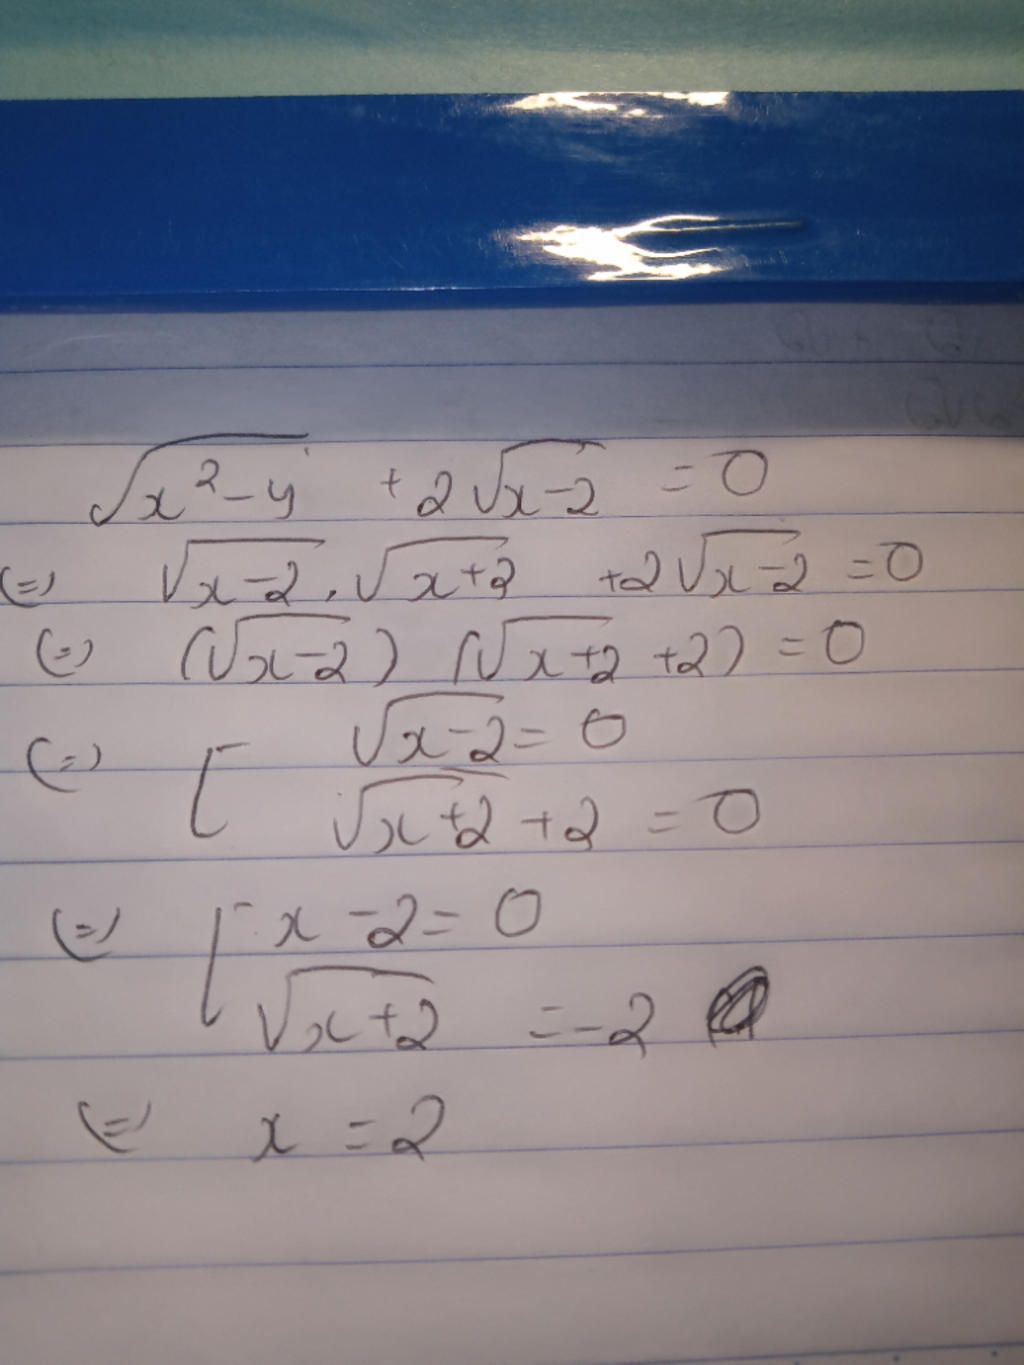 √(x²-4) + 2√(x-2) = 0
(=) √(x-2) . √(x+2) +2√(x-2) = 0
(=) (√(x-2)) (√(x+2) +2) = 0
(=) [ √(x-2) = 0
√(x+2) +2 = 0
(=) [ x -2 = 0
√(x+2) = -2
(=) x = 2